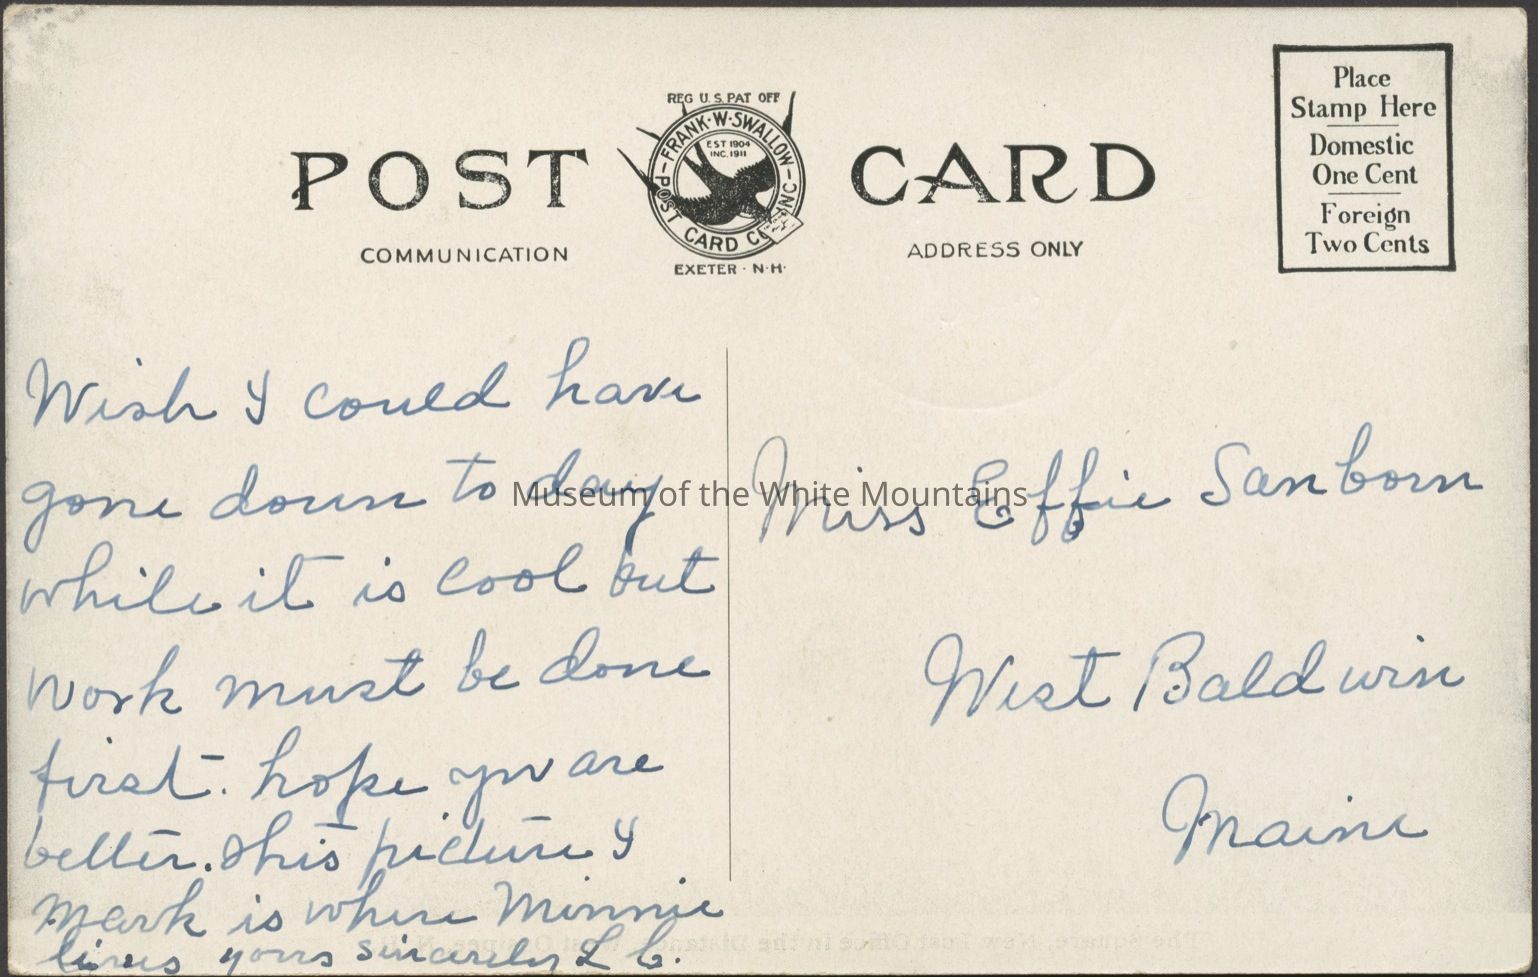 REG U.S. PAT OFF
FRANK·W·SWALLOW
POST CARD CO. INC.
EST 1904
INC. 1911
EXETER · N·H·
POST CARD
COMMUNICATION
ADDRESS ONLY
Place
Stamp Here
Domestic
One Cent
Foreign
Two Cents
Wish I could have
gone down to day
while it is cool but
work must be done
first. hope you are
better. This picture I
mark is where Minnie
lives yours sincerely L C.
Miss Effie Sanborn
West Baldwin
Maine
Museum of the White Mountains
The Square, New Post Office in the Distance, West Ossipee, N. H.